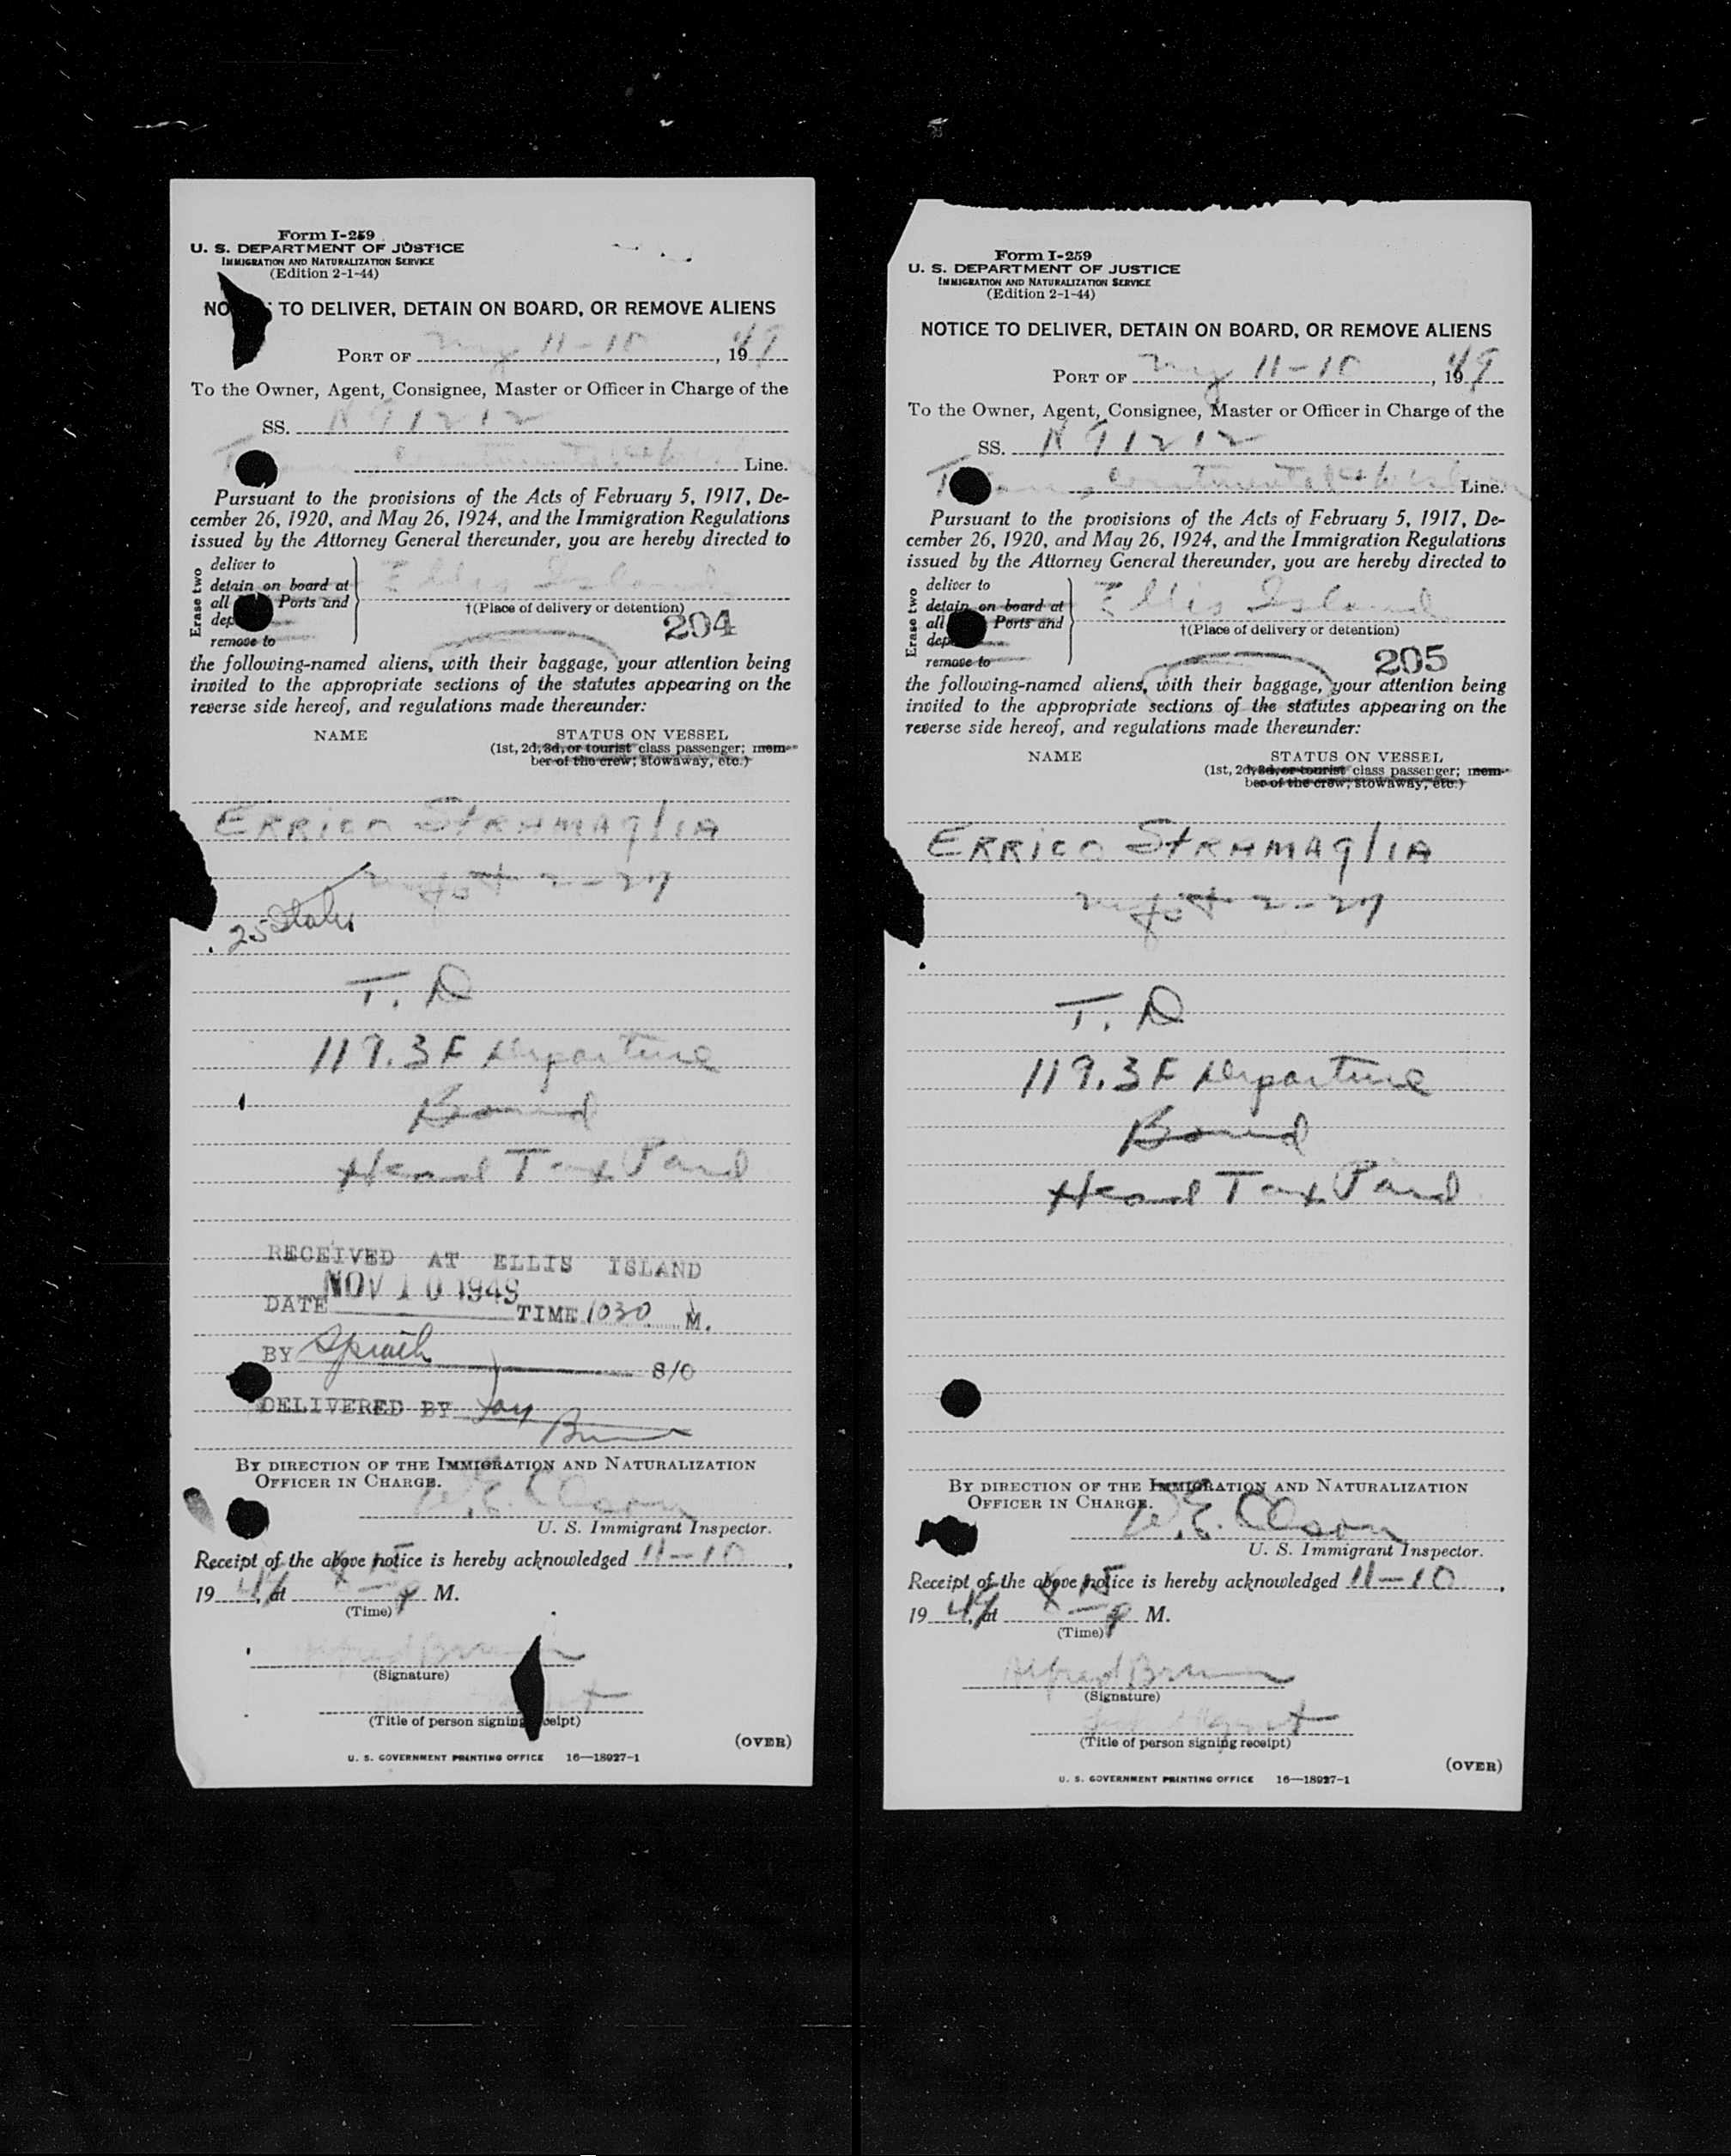 Form I-259
U. S. DEPARTMENT OF JUSTICE
IMMIGRATION AND NATURALIZATION SERVICE
(Edition 2-1-44)
TO DELIVER, DETAIN ON BOARD, OR REMOVE ALIENS
PORT OF NY 11-10, 1949
To the Owner, Agent, Consignee, Master or Officer in Charge of the
SS. N 91212
Line.
Pursuant to the provisions of the Acts of February 5, 1917, De-
cember 26, 1920, and May 26, 1924, and the Immigration Regulations
issued by the Attorney General thereunder, you are hereby directed to
Erase two
deliver to
detain on board at
all Ports and
remove to
Ellis Island
†(Place of delivery or detention)
204
the following-named aliens, with their baggage, your attention being
invited to the appropriate sections of the statutes appearing on the
reverse side hereof, and regulations made thereunder:
NAME STATUS ON VESSEL
(1st, 2d, 3d, or tourist class passenger; mem-
ber of the crew; stowaway, etc.)
ERRICO STRAMAGLIA
2-27
25
T. D
119.3F Departure
Bond
Head Tax Paid
RECEIVED AT ELLIS ISLAND
DATE NOV 10 1949 TIME 1030 M.
BY S/O
DELIVERED BY
BY DIRECTION OF THE IMMIGRATION AND NATURALIZATION
OFFICER IN CHARGE.
W.E. Olson
U. S. Immigrant Inspector.
Receipt of the above notice is hereby acknowledged 11-10,
1949, at M.
(Time)
Alfred
(Signature)
(Title of person signing receipt)
(OVER)
U. S. GOVERNMENT PRINTING OFFICE 16—18927-1
Form I-259
U. S. DEPARTMENT OF JUSTICE
IMMIGRATION AND NATURALIZATION SERVICE
(Edition 2-1-44)
NOTICE TO DELIVER, DETAIN ON BOARD, OR REMOVE ALIENS
PORT OF NY 11-10, 1949
To the Owner, Agent, Consignee, Master or Officer in Charge of the
SS. N 91212
Line.
Pursuant to the provisions of the Acts of February 5, 1917, De-
cember 26, 1920, and May 26, 1924, and the Immigration Regulations
issued by the Attorney General thereunder, you are hereby directed to
Erase two
deliver to
detain on board at
all Ports and
remove to
Ellis Island
†(Place of delivery or detention)
205
the following-named aliens, with their baggage, your attention being
invited to the appropriate sections of the statutes appearing on the
reverse side hereof, and regulations made thereunder:
NAME STATUS ON VESSEL
(1st, 2d, 3d, or tourist class passenger; mem-
ber of the crew; stowaway, etc.)
ERRICO STRAMAGLIA
2-27
T. D
119.3F Departure
Bond
Head Tax Paid
BY DIRECTION OF THE IMMIGRATION AND NATURALIZATION
OFFICER IN CHARGE.
W.E. Olson
U. S. Immigrant Inspector.
Receipt of the above notice is hereby acknowledged 11-10,
1949, at M.
(Time)
Alfred
(Signature)
(Title of person signing receipt)
(OVER)
U. S. GOVERNMENT PRINTING OFFICE 16—18927-1